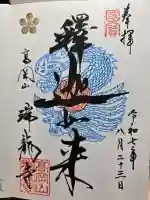 奉拝
令和七年
八月二十三日
釋迦如来
高岡山
瑞龍寺